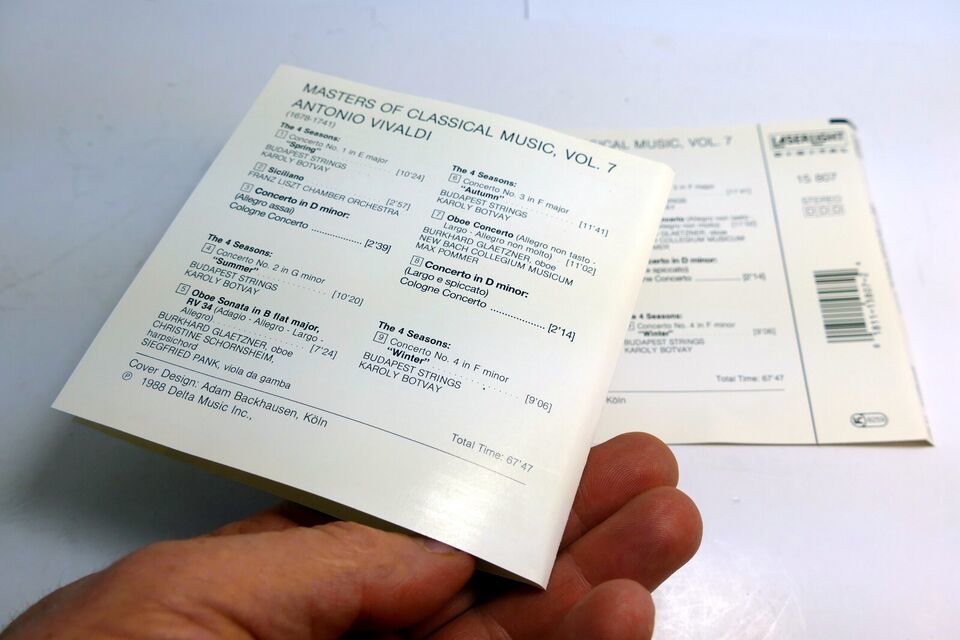 MASTERS OF CLASSICAL MUSIC, VOL. 7
ANTONIO VIVALDI
(1678-1741)
The 4 Seasons:
1 Concerto No. 1 in E major
"Spring" . . . . . . . . [10'24]
BUDAPEST STRINGS
KAROLY BOTVAY
2 Siciliano [2'57]
FRANZ LISZT CHAMBER ORCHESTRA
3 Concerto in D minor:
(Allegro assai)
Cologne Concerto .............. [2'39]
The 4 Seasons:
4 Concerto No. 2 in G minor
"Summer" . . . . . . . . [10'20]
BUDAPEST STRINGS
KAROLY BOTVAY
5 Oboe Sonata in B flat major,
RV 34 (Adagio - Allegro - Largo -
Allegro) . . . . . . . . [7'24]
BURKHARD GLAETZNER, oboe
CHRISTINE SCHORNSHEIM,
harpsichord
SIEGFRIED PANK, viola da gamba
The 4 Seasons:
6 Concerto No. 3 in F major
"Autumn" . . . . . . . . [11'41]
BUDAPEST STRINGS
KAROLY BOTVAY
7 Oboe Concerto (Allegro non tasto -
Largo - Allegro non molto) . . [11'02]
BURKHARD GLAETZNER, oboe
NEW BACH COLLEGIUM MUSICUM
MAX POMMER
8 Concerto in D minor:
(Largo e spiccato)
Cologne Concerto .............. [2'14]
The 4 Seasons:
9 Concerto No. 4 in F minor
"Winter" . . . . . . . . [9'06]
BUDAPEST STRINGS
KAROLY BOTVAY
Total Time: 67'47
Cover Design: Adam Backhausen, Köln
℗ 1988 Delta Music Inc.,
MUSIC, VOL. 7
LASERLIGHT
DIGITAL
15 807
STEREO
DDD
in F major
(Allegro non tasto -
non molto)
GLAETZNER, oboe
COLLEGIUM MUSICUM
in D minor:
e spiccato)
Concerto [2'14]
Concerto No. 4 in F minor
"Winter" [9'06]
BUDAPEST STRINGS
KAROLY BOTVAY
Total Time: 67'47
Köln